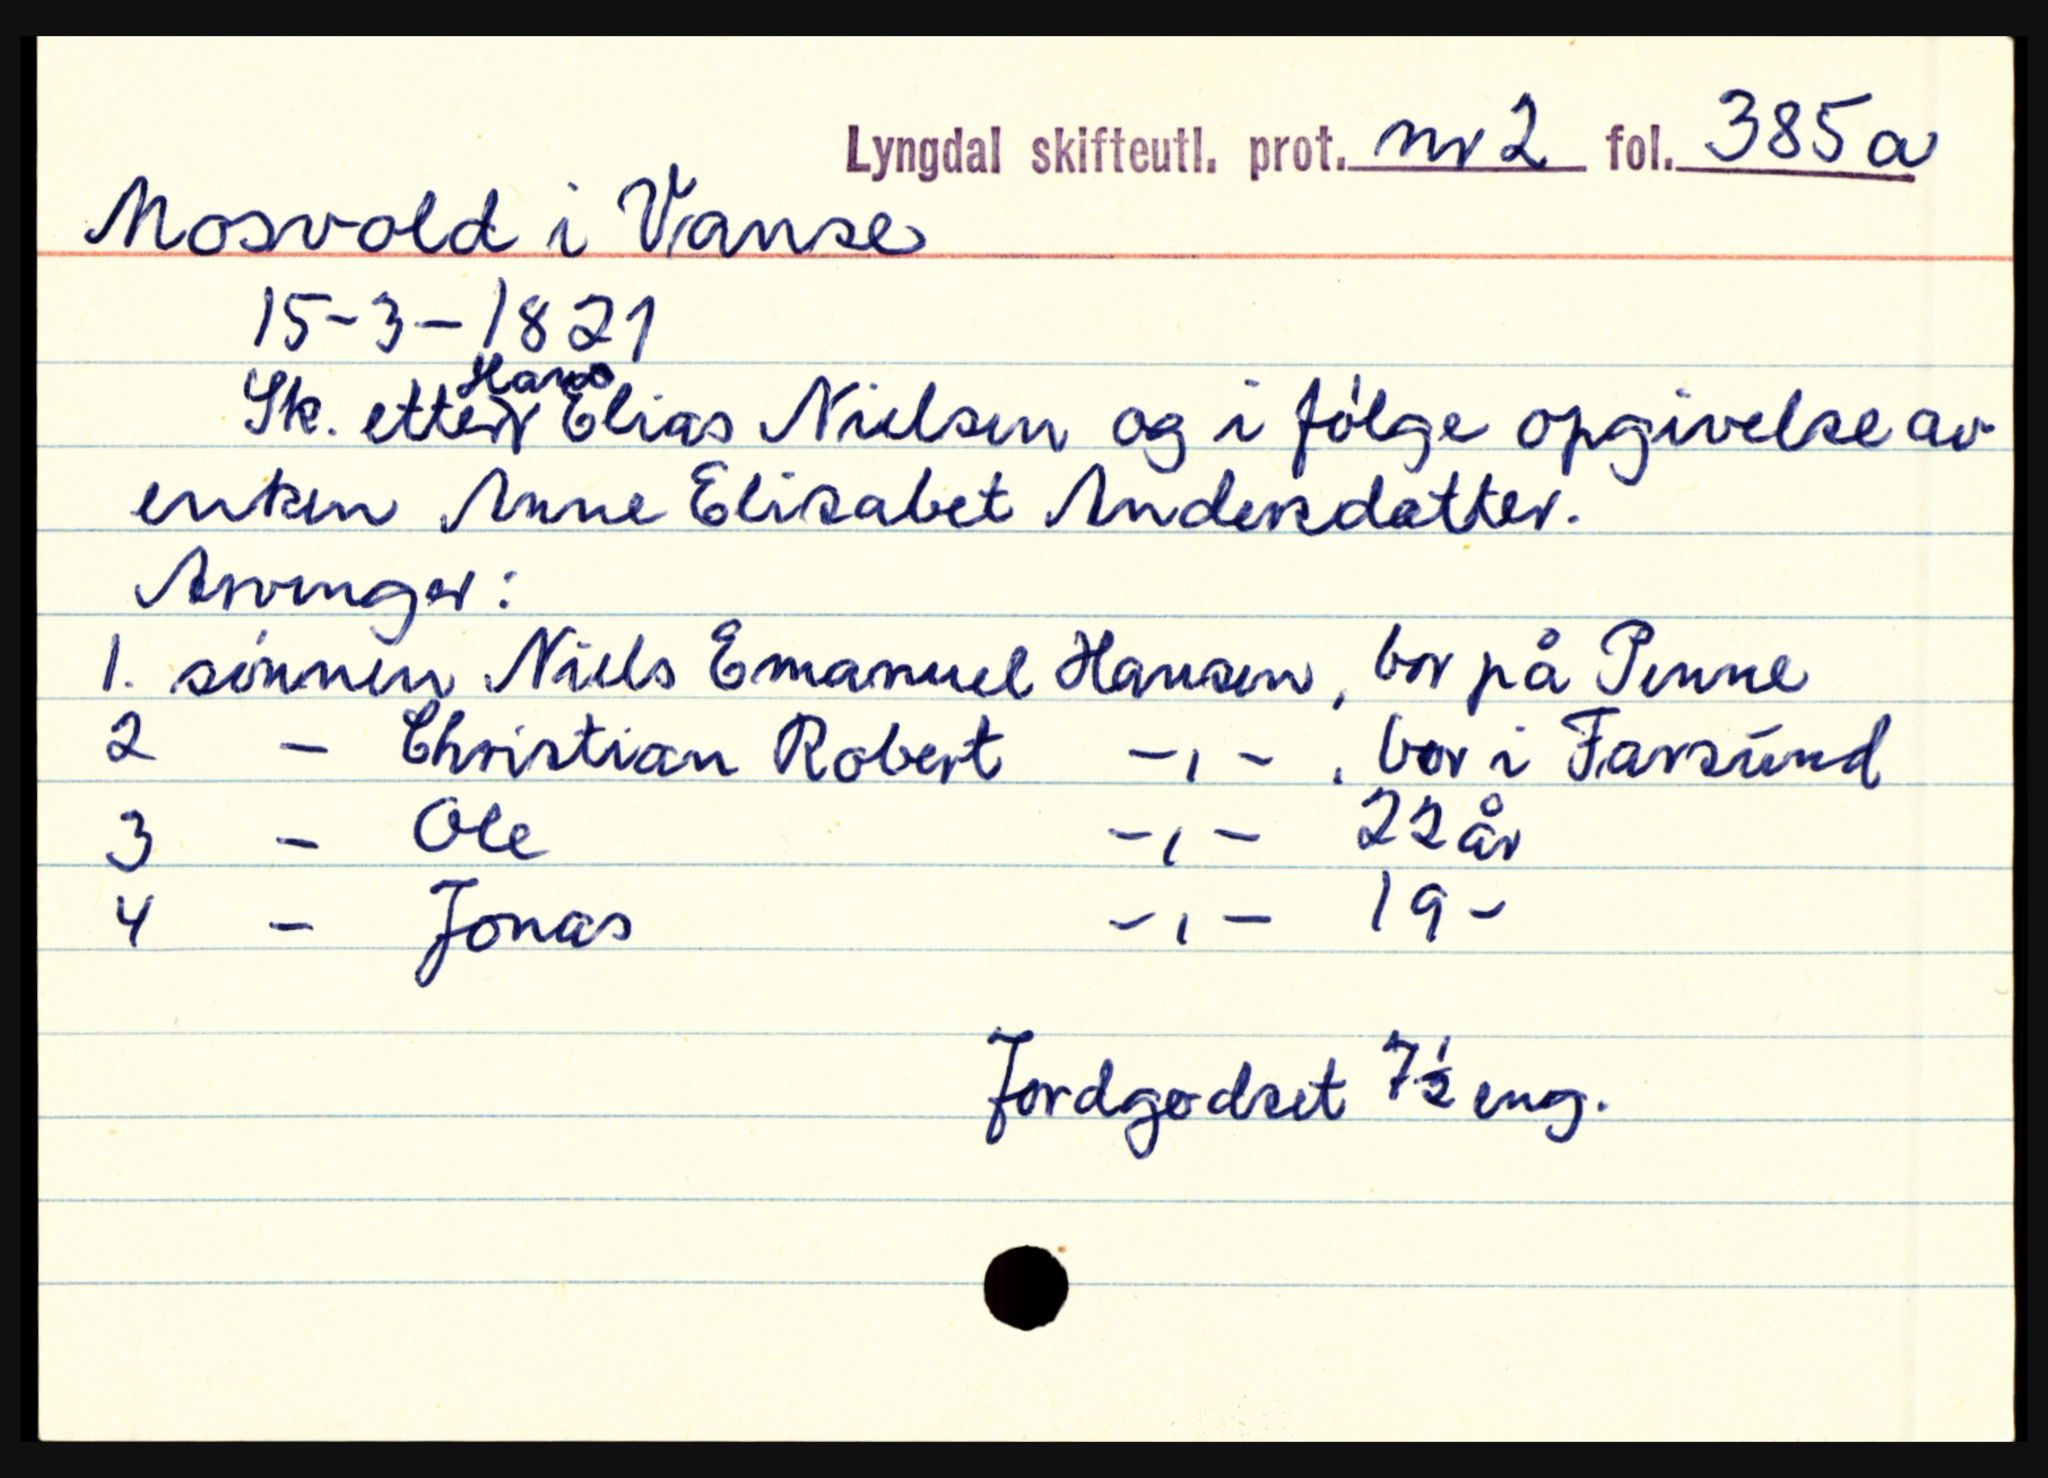 Lyngdal skifteutl. prot. nr 2 fol. 385a
Mosvold i Vanse
15-3-1821
Sk. etter Hans Elias Nielsen og i følge opgivelse av
enken Anne Elisabet Andersdatter.
Arvinger:
1. sønnen Niels Emanuel Hansen, bor på Penne
2 - Christian Robert -,- , bor i Farsund
3 - Ole -,- 22 år
4 - Jonas -,- 19 -
Jordgodset 7½ eng.